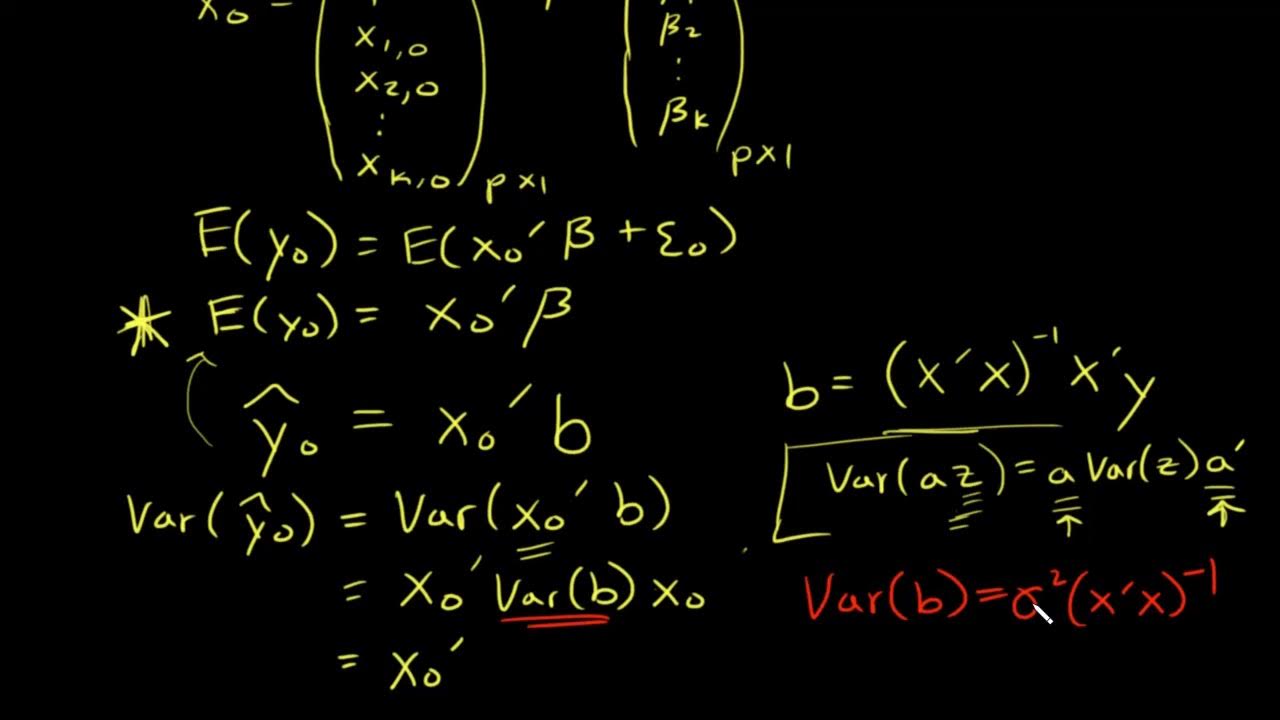 x₀ =
x₁,₀
x₂,₀
⋮
xₖ,₀
p×1
β₂
⋮
βₖ
p×1
E(y₀) = E(x₀′β + ε₀)
* E(y₀) = x₀′β
ŷ₀ = x₀′b
Var(ŷ₀) = Var(x₀′b)
= x₀′Var(b)x₀
= x₀′
b = (x′x)⁻¹x′y
Var(az) = aVar(z)a′
Var(b) = σ²(x′x)⁻¹